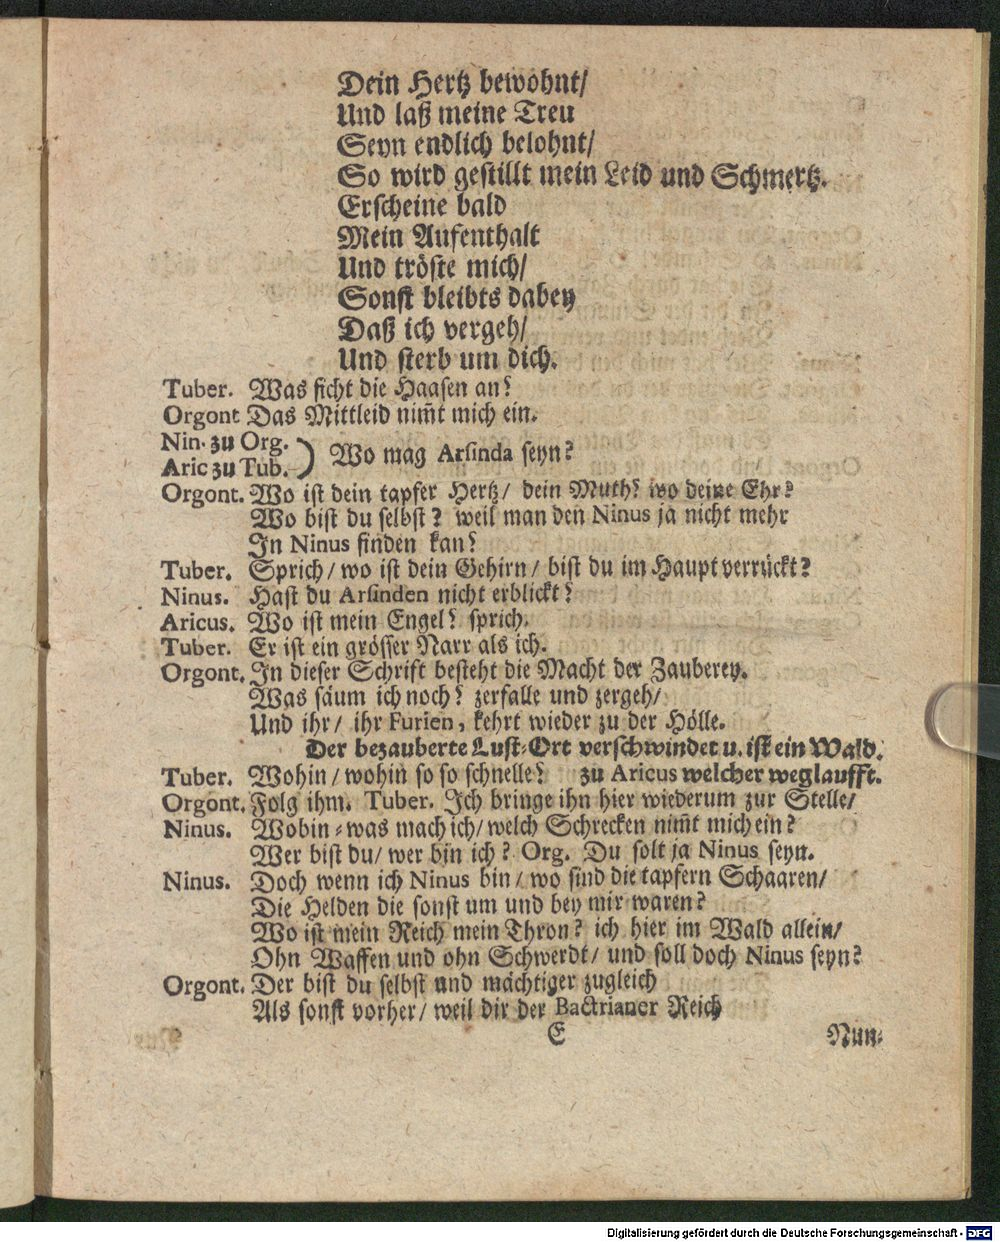 Dein Hertz bewohnt/
Und laß meine Treu
Seyn endlich belohnt/
So wird gestillt mein Leid und Schmertz.
Erscheine bald
Mein Aufenthalt
Und tröste mich/
Sonst bleibts dabey
Daß ich vergeh/
Und sterb um dich.
Tuber. Was ficht die Haasen an?
Orgont Das Mittleid nim̃t mich ein.
Nin. zu Org.
Aric zu Tub. ) Wo mag Arsinda seyn?
Orgont. Wo ist dein tapfer Hertz/ dein Muth? wo deine Ehr?
Wo bist du selbst? weil man den Ninus ja nicht mehr
In Ninus finden kan?
Tuber. Sprich/ wo ist dein Gehirn/ bist du im Haupt verrückt?
Ninus. Hast du Arsinden nicht erblickt?
Aricus. Wo ist mein Engel? sprich.
Tuber. Er ist ein grösser Narr als ich.
Orgont. In dieser Schrift besteht die Macht der Zauberey.
Was säum ich noch? zerfalle und zergeh/
Und ihr/ ihr Furien, kehrt wieder zu der Hölle.
Der bezauberte Lust-Ort verschwindet u. ist ein Wald.
Tuber. Wohin/ wohin so so schnelle? zu Aricus welcher weglaufft.
Orgont. Folg ihm. Tuber. Ich bringe ihn hier wiederum zur Stelle/
Ninus. Wobin-was mach ich/ welch Schrecken nim̃t mich ein?
Wer bist du/ wer bin ich? Org. Du solt ja Ninus seyn.
Ninus. Doch wenn ich Ninus bin/ wo sind die tapfern Schaaren/
Die Helden die sonst um und bey mir waren?
Wo ist mein Reich mein Thron? ich hier im Wald allein/
Ohn Waffen und ohn Schwerdt/ und soll doch Ninus seyn?
Orgont. Der bist du selbst und mächtiger zugleich
Als sonst vorher/ weil dir der Bactrianer Reich
E Nun-
Digitalisierung gefördert durch die Deutsche Forschungsgemeinschaft - DFG